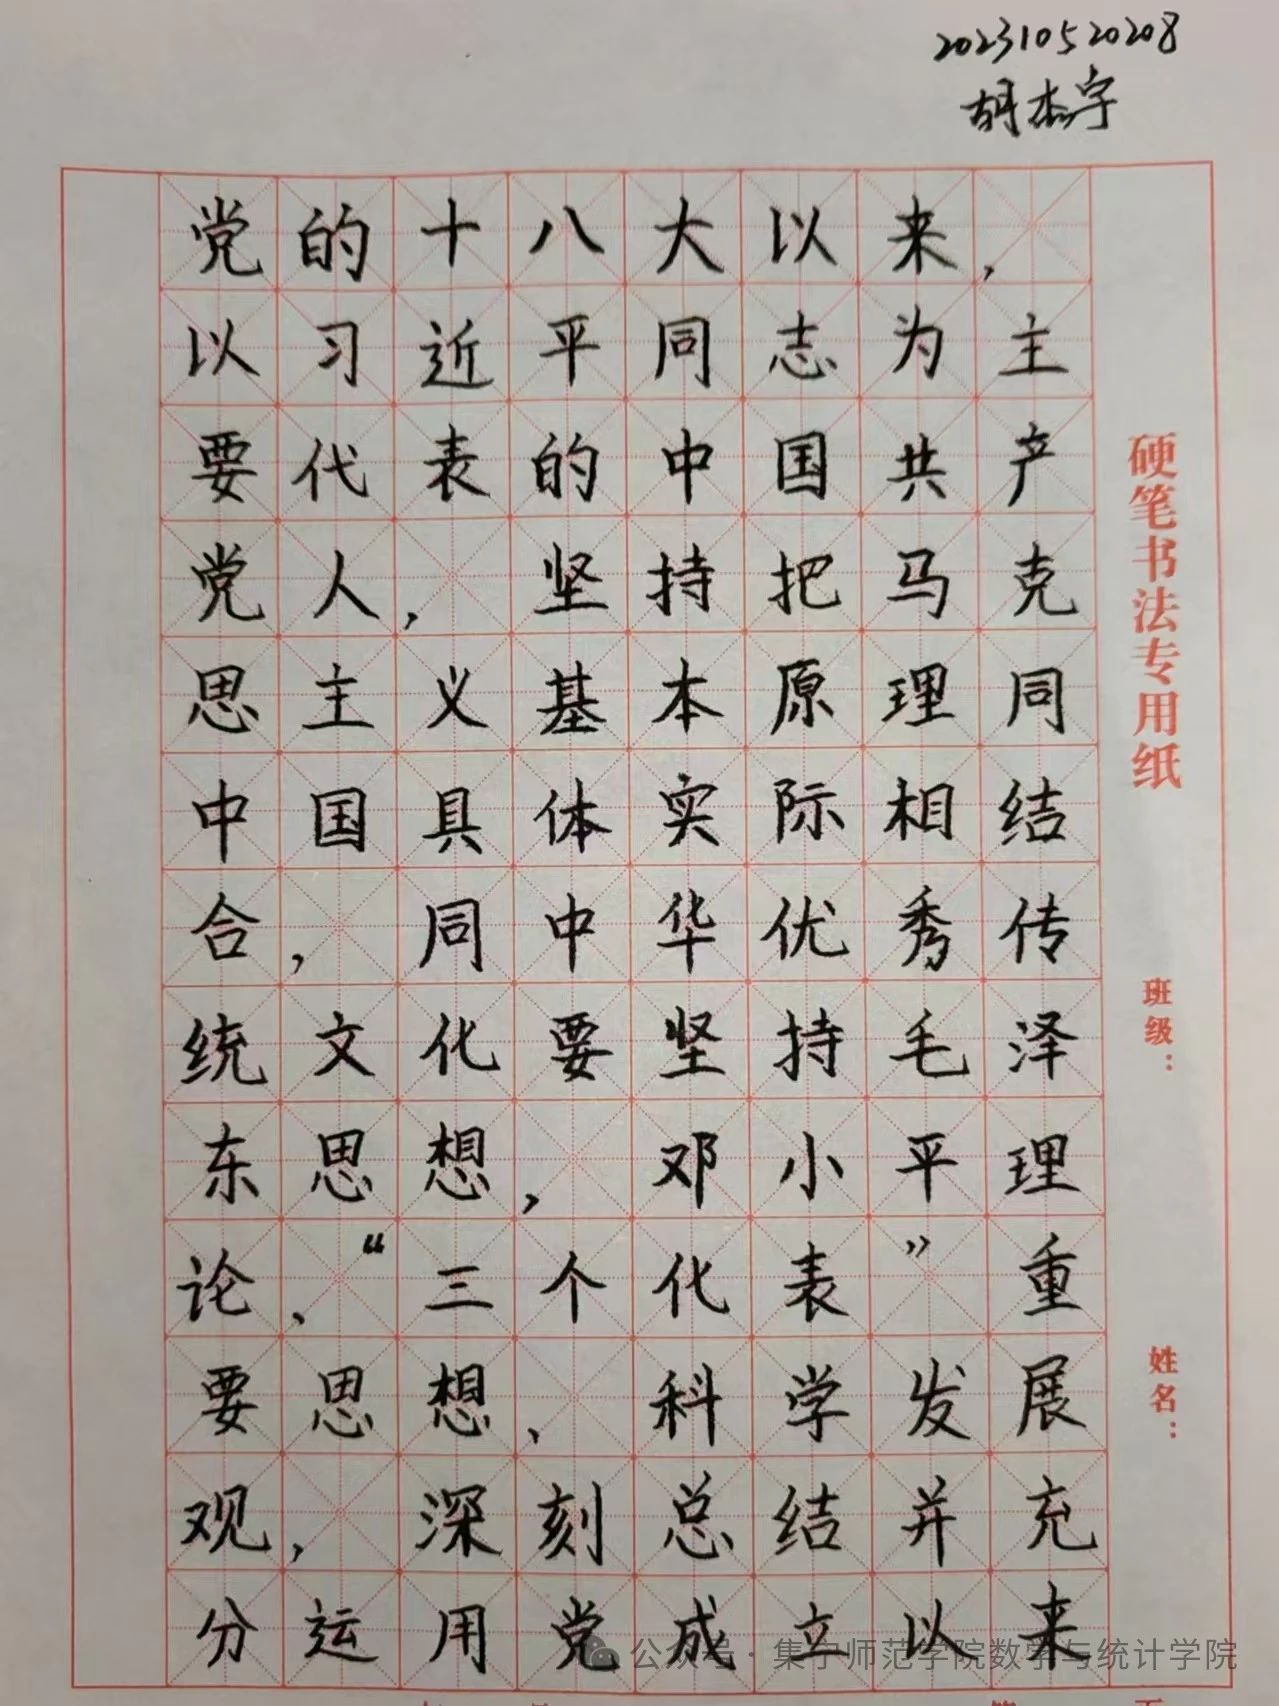 202310520208
胡杰宇
党的十八大以来，
以习近平同志为主
要代表的中国共产
党人，坚持把马克
思主义基本原理同
中国具体实际相结
合，同中华优秀传
统文化要坚持毛泽
东思想，邓小平理
论、“三个化表”重
要思想、科学发展
观，深刻总结并充
分运用党成立以来
硬笔书法专用纸
班级：
姓名：
公众号·集宁师范学院数学与统计学院